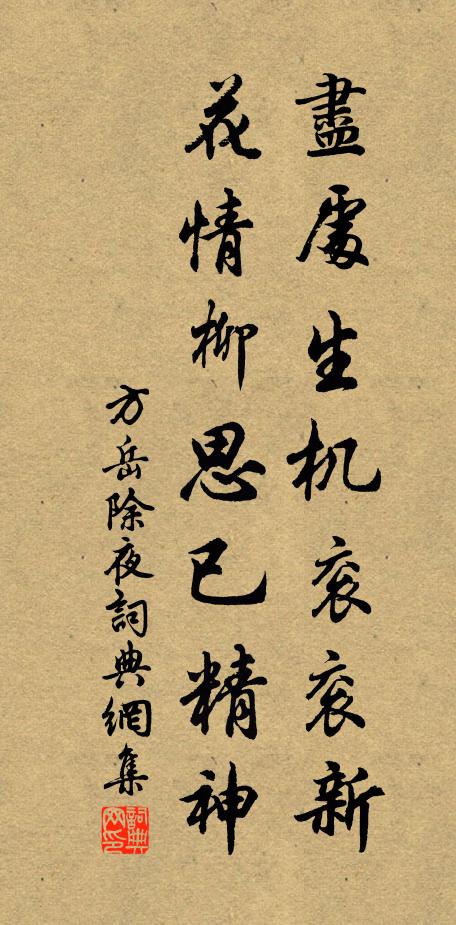 盡處生机衮衮新
花情柳思已精神
方岳除夜詞典網集
詞典
网印